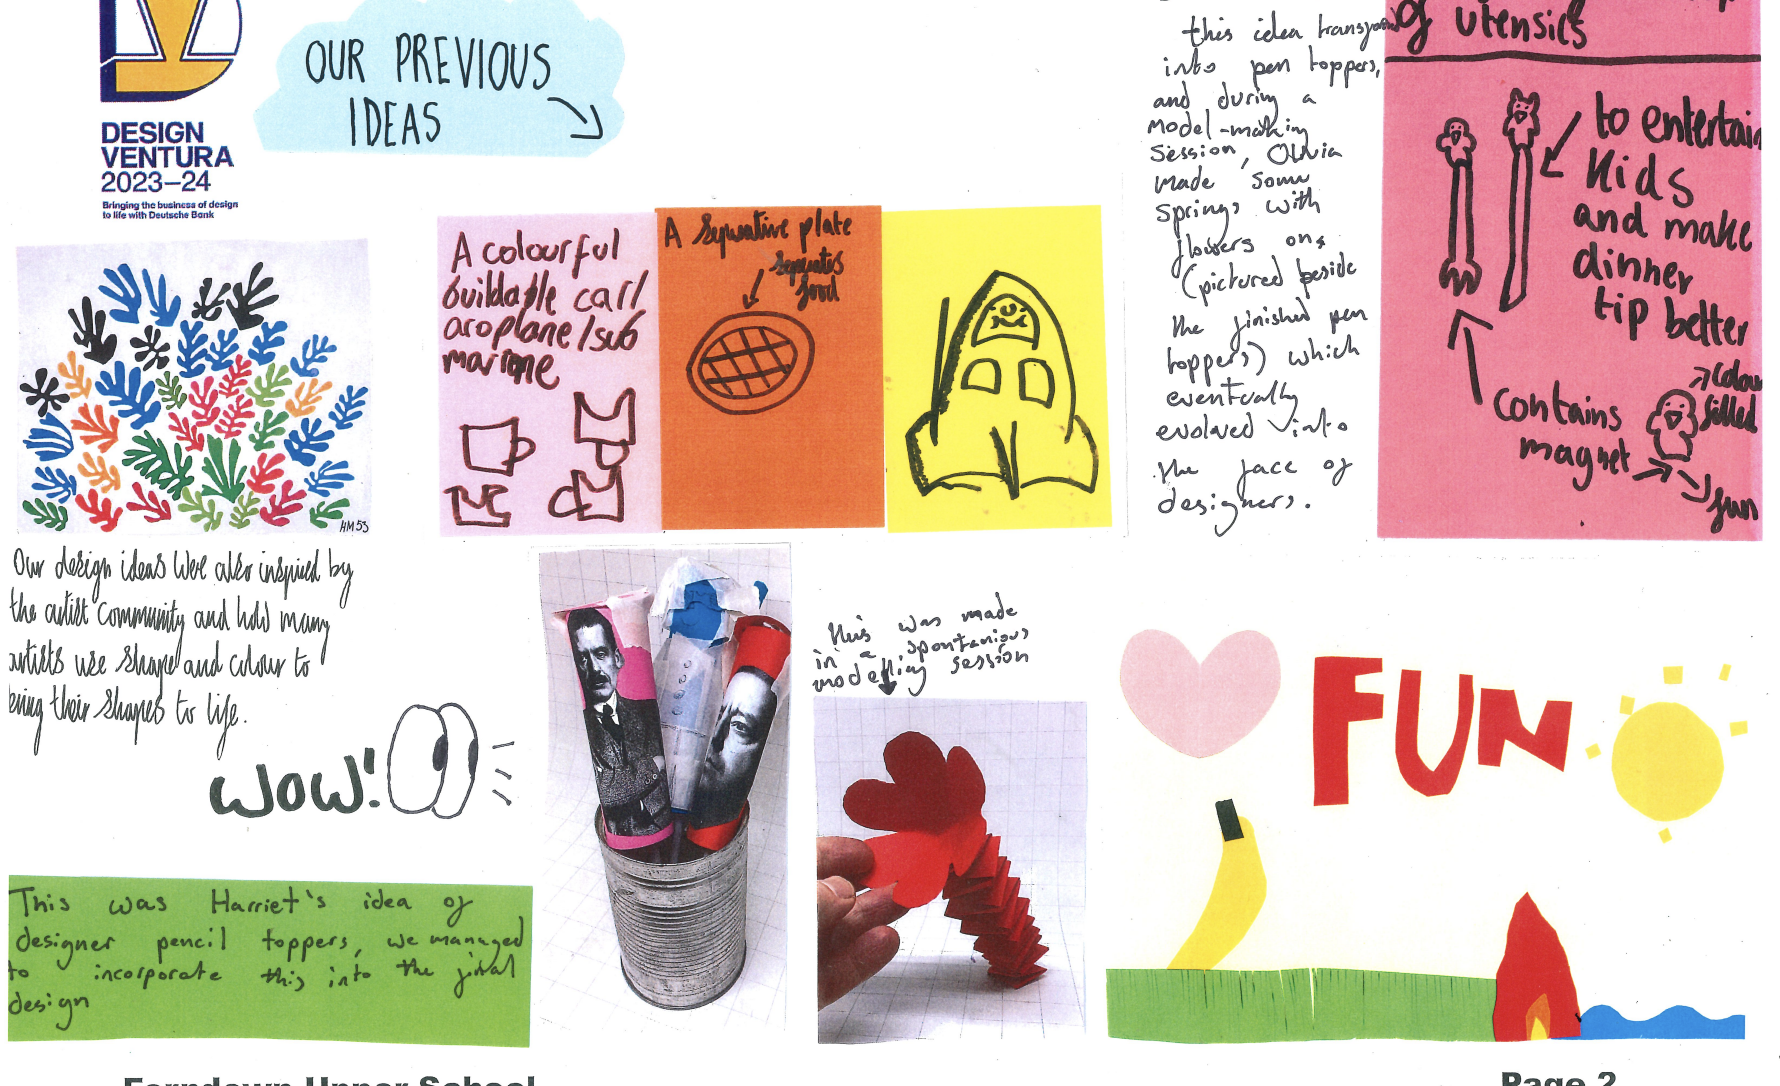 DESIGN
VENTURA
2023–24
Bringing the business of design
to life with Deutsche Bank
OUR PREVIOUS
IDEAS
this idea
into pen toppers,
and during a
model-making
Session, Olivia
made some
springs with
flowers on
(pictured beside
the finished pen
toppers) which
eventually
evolved into
the face of
designers.
of utensils
to entertain
Kids
and make
dinner
tip better
contains
magnet
colour
filled
fun
A colourful
buildable car/
aroplane/sub
A plate
food
HM53
Our design ideas were also inspired by
the artist Community and how many
artists use shape and colour to
bring their shapes to life.
WOW!
This was Harriet's idea of
designer pencil toppers, we managed
to incorporate this into the final
design
this was made
in a spontanious
modelling session
FUN
Ferndown Upper School
Page 2